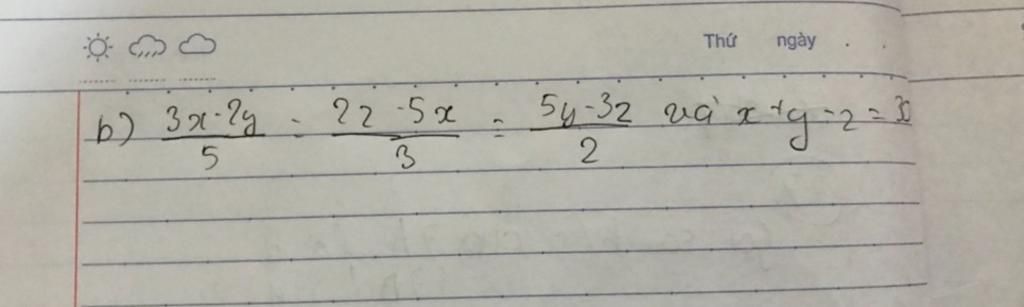 Thứ ngày
b) \frac{3x-2y}{5} = \frac{2z-5x}{3} = \frac{5y-3z}{2} và x+y-z=30